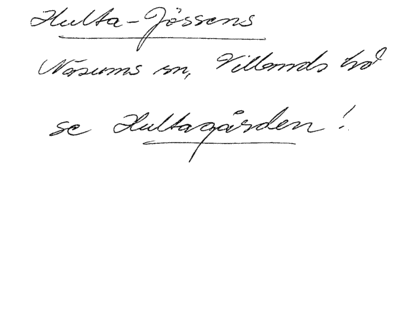 Hulta-Jössens
Näsums sn, Villands hd
se Hultagården!